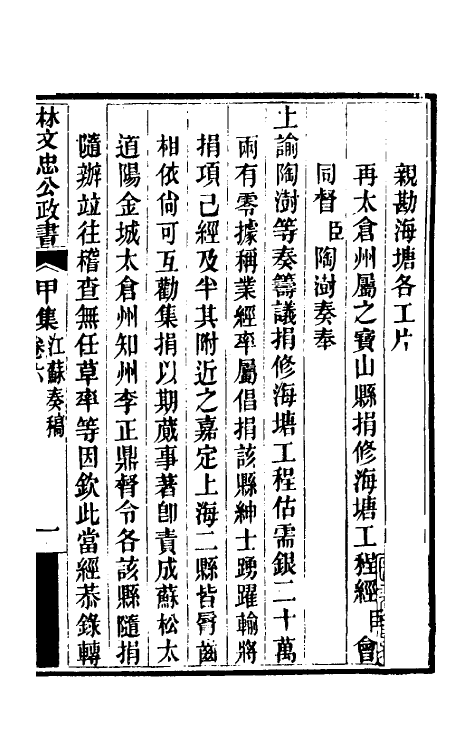 親勘海塘各工片
再太倉州屬之寶山縣捐修海塘工程經臣會
同督臣陶澍奏奉
上諭陶澍等奏籌議捐修海塘工程估需銀二十萬
兩有零據稱業經率屬倡捐該縣紳士踴躍輸將
捐項已經及半其附近之嘉定上海二縣皆脣齒
相依尙可互勸集捐以期蕆事著卽責成蘇松太
道陽金城太倉州知州李正鼎督令各該縣隨捐
隨辦竝往稽查無任草率等因欽此當經恭錄轉
林文忠公政書
甲集
卷六
江蘇奏稿
一